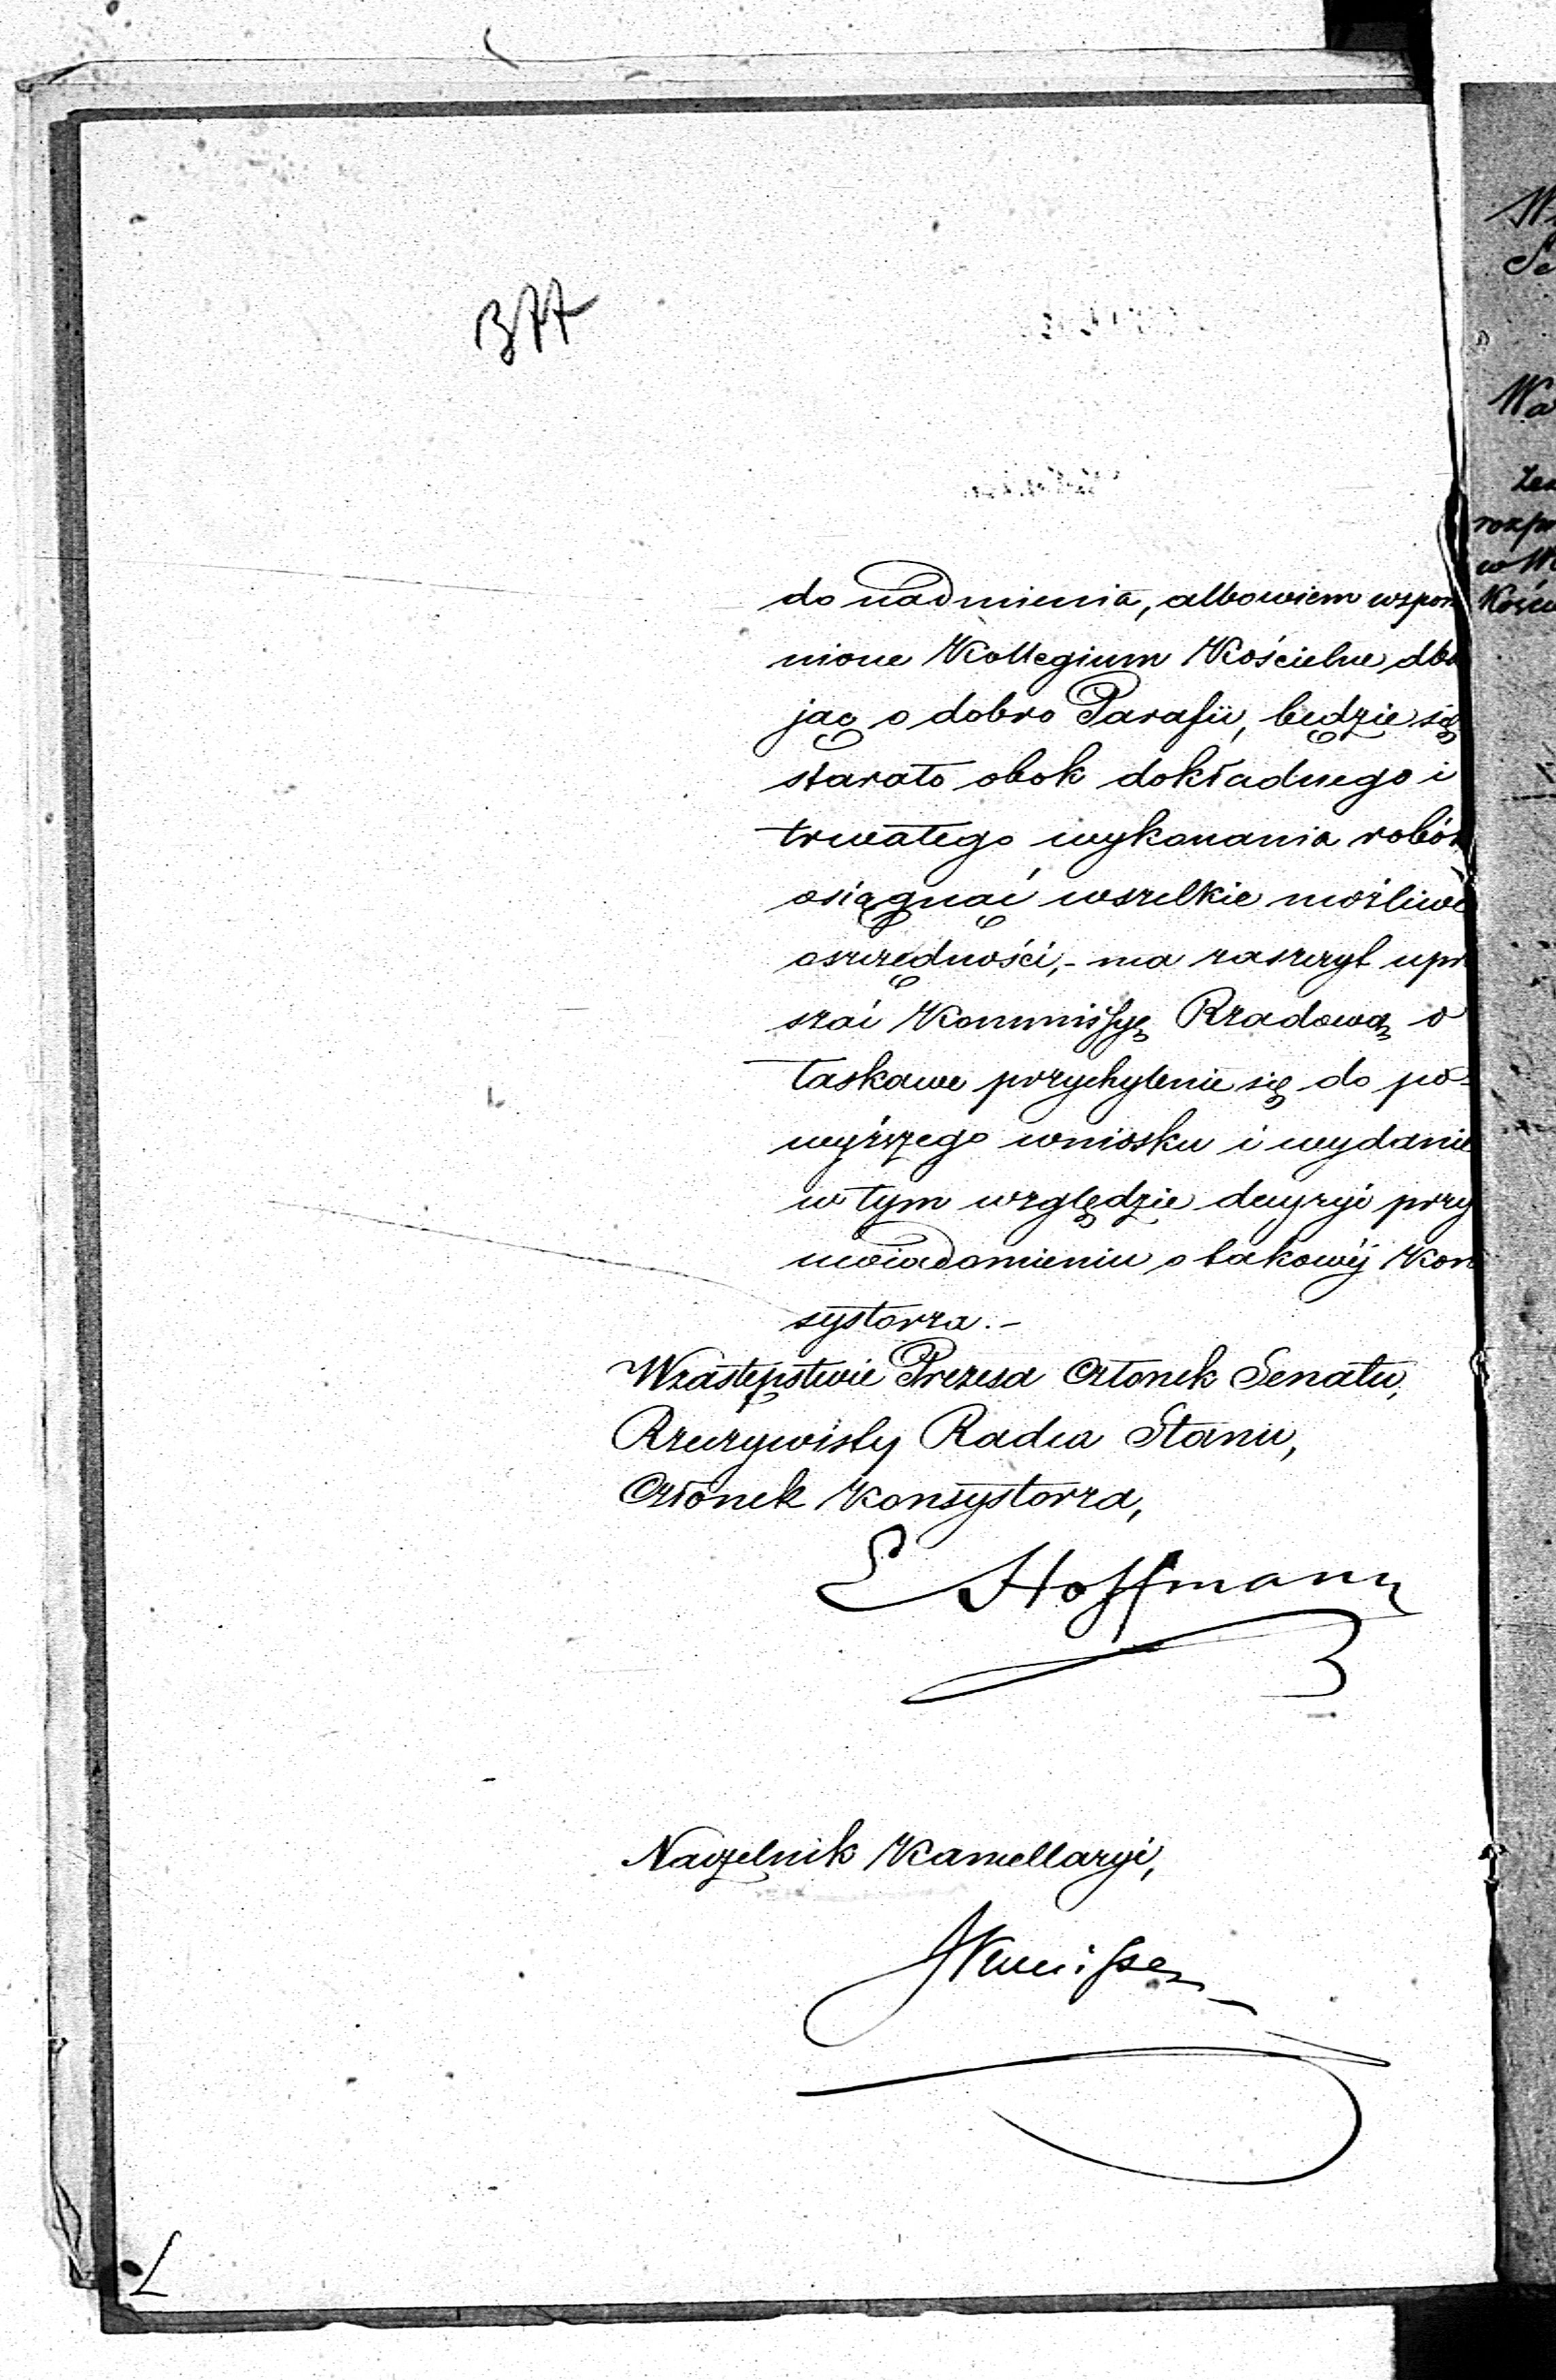 377
do nadmienia, albowiem wspom
nione Kollegium Kościelne dba
jąc o dobro Parafii, będzie się
starało obok dokładnego i
trwałego wykonania robót
osiągnąć wszelkie możliwe
oszczędności,- ma zaszczyt upra
szać Kommissyę Rządową o
łaskawe przychylenie się do po=
wyższego wniosku i wydanie
w tym względzie decyzyi przy
uwiadomieniu o takowéj Kon
systorza.-
W zastępstwie Prezesa Członek Senatu,
Rzeczywisty Radca Stanu,
Członek Konsystorza,
E Hoffmann
Naczelnik Kancellaryi,